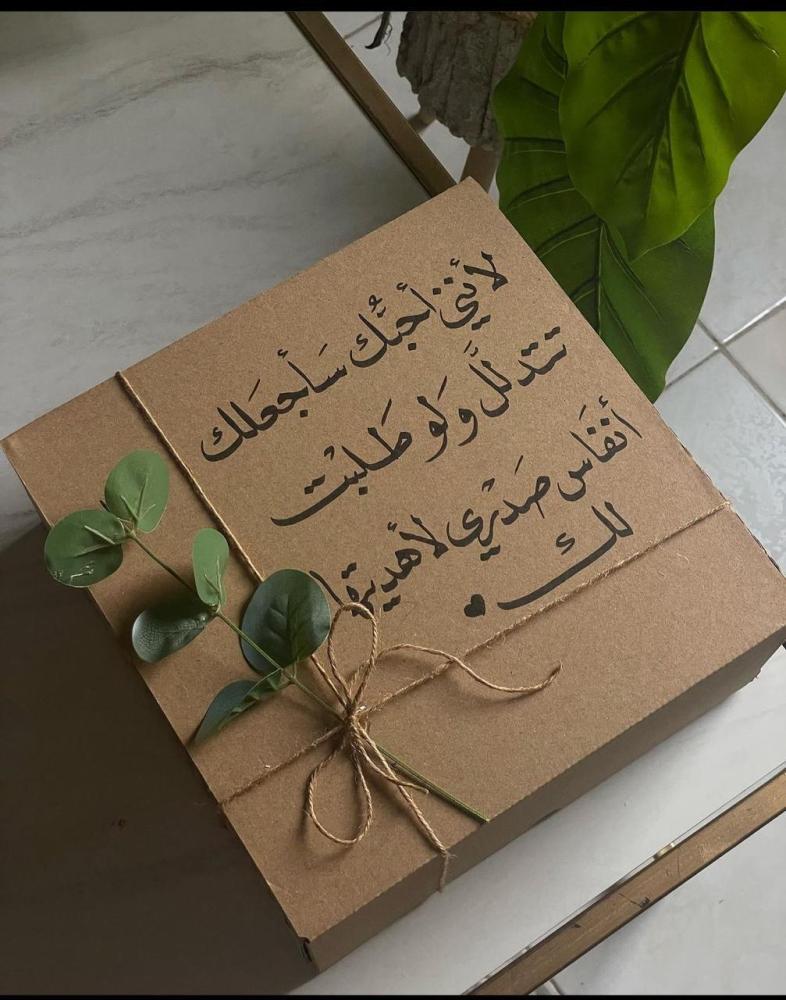 لأنني أُحبُّك سَأجعَلك
تتدللَّ وَلَو طَلبْت
أنفَاس صَدْري لأهديتها
لك ♥